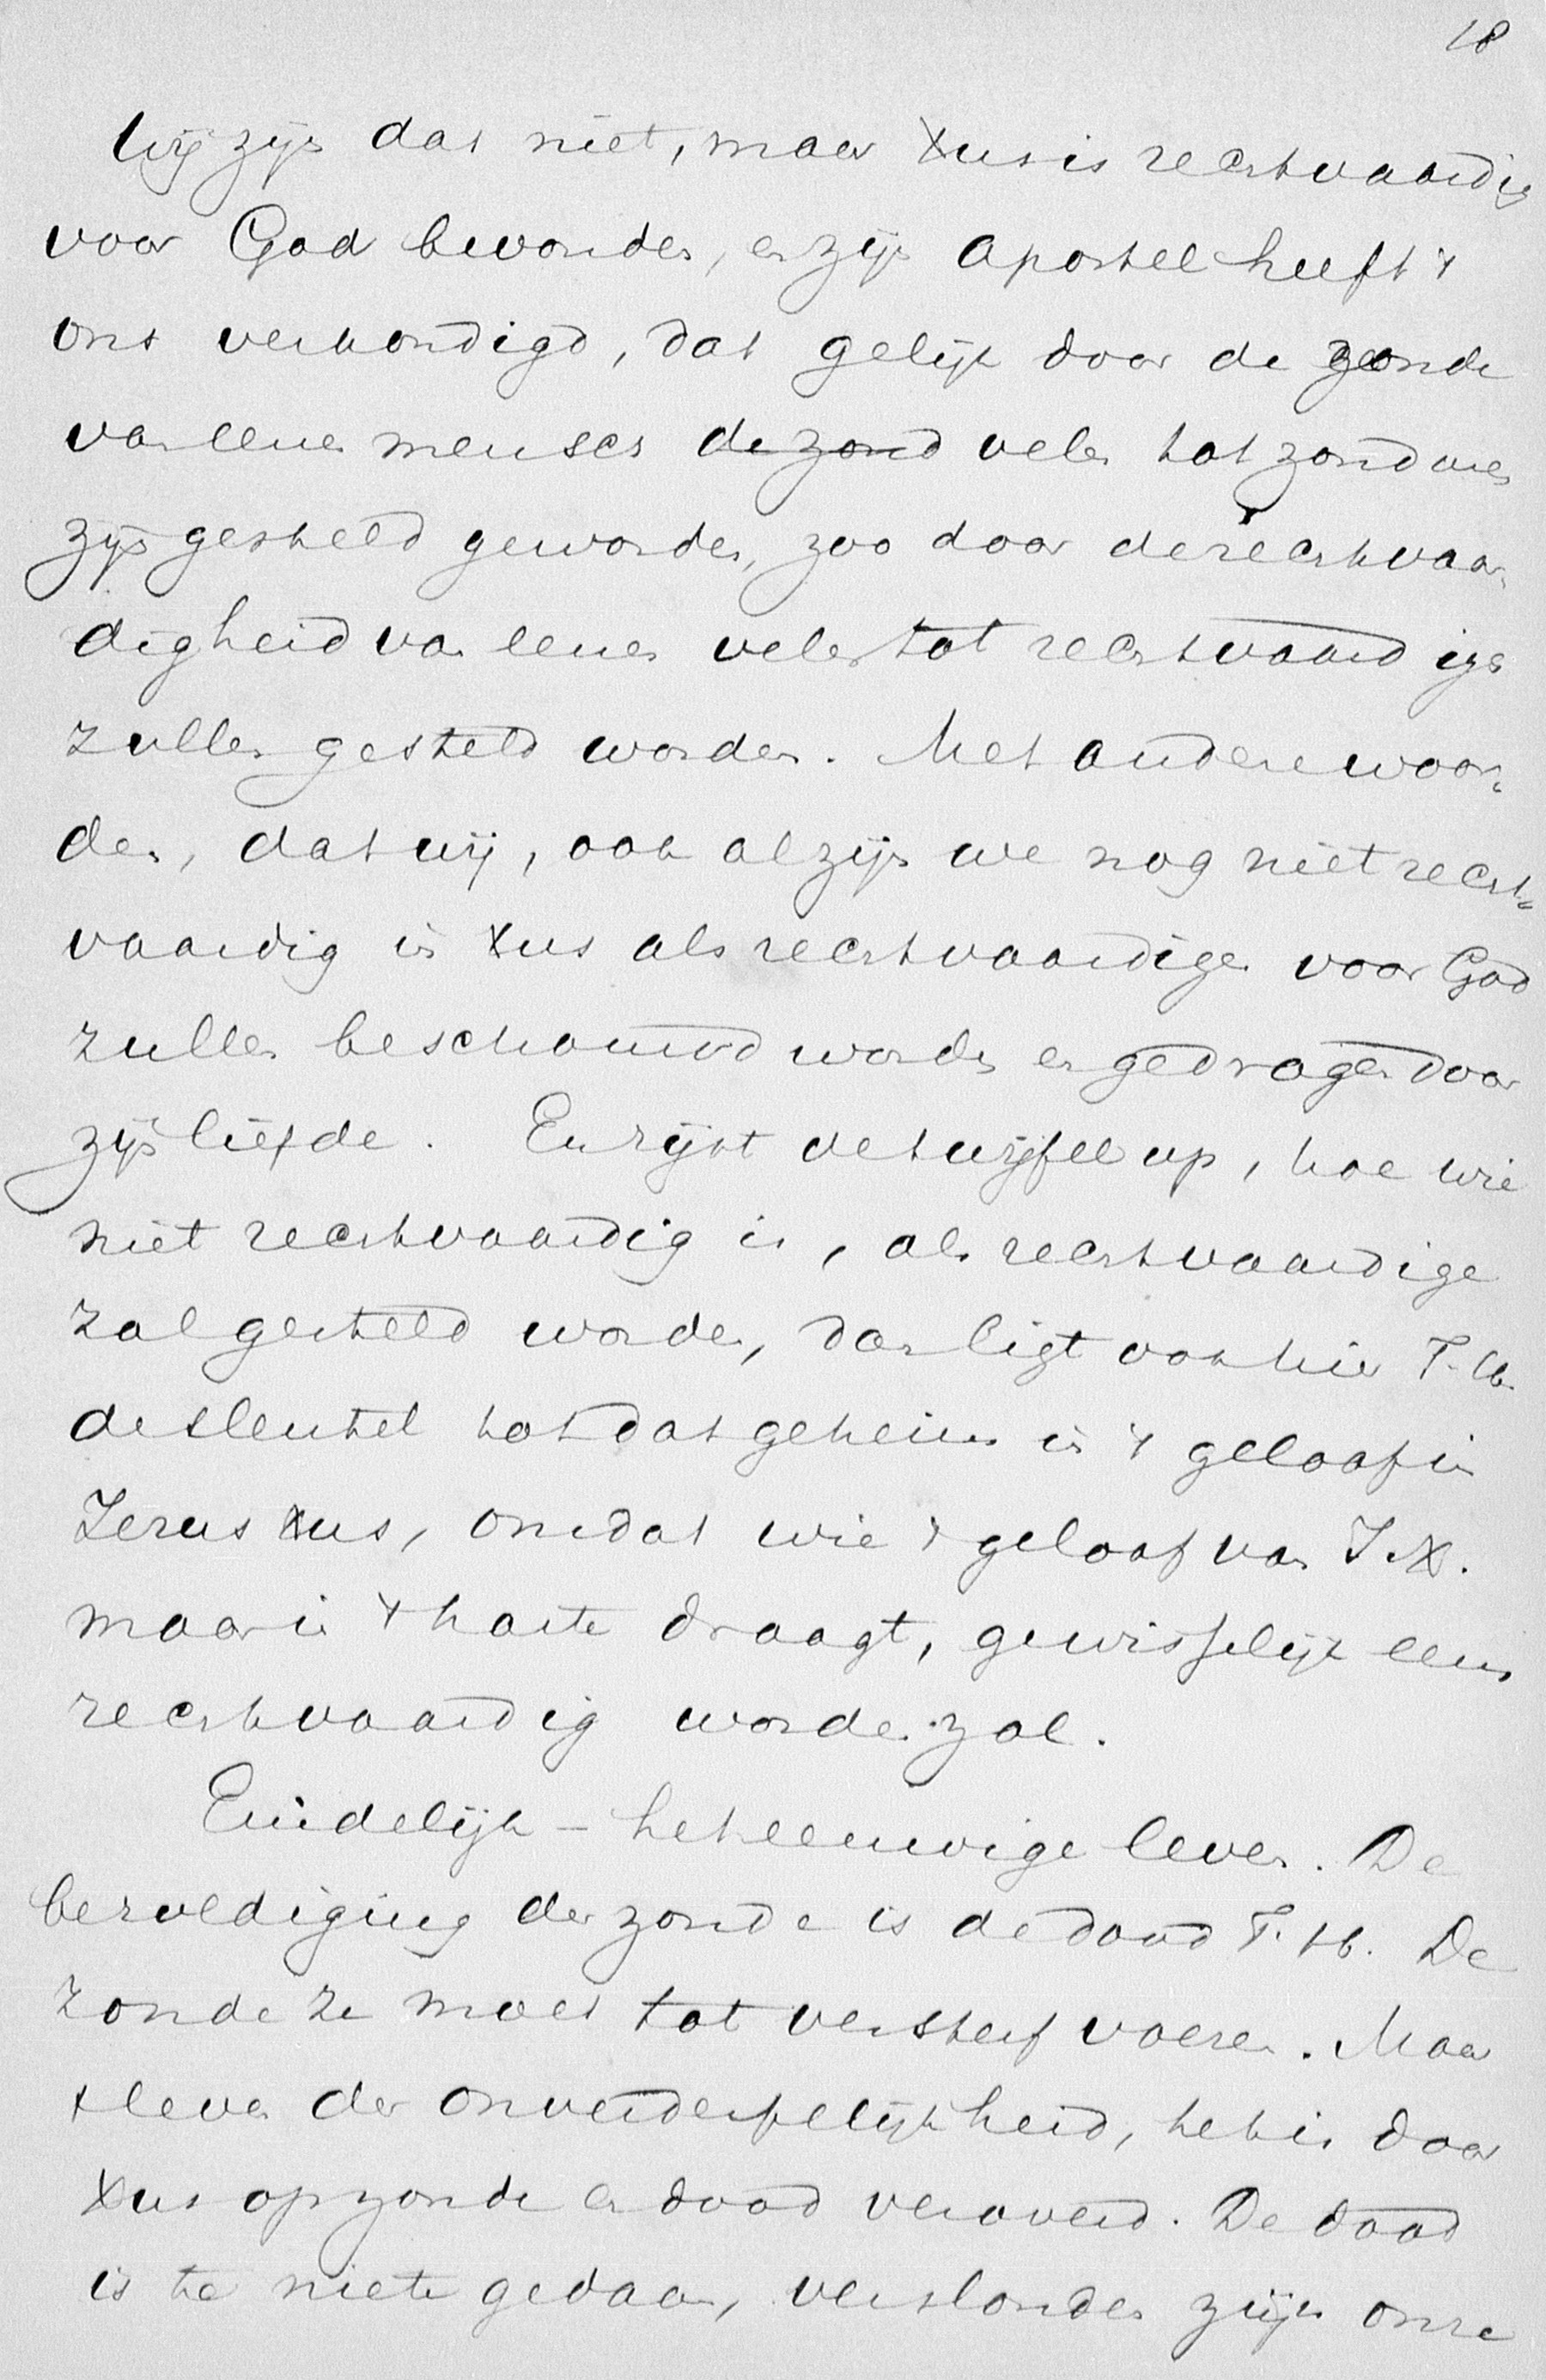 18
Wij zijn dat niet, maar Xus is rechtvaardig
voor God bevonden, en zijn Apostel heeft 't
ons verkondigd, dat gelijk door de zonde
van eenen mensch de zond velen tot zondaren
zijn gesteld geworden, zoo door de rechtvaar-
digheid van eenen velen tot rechtvaardigen
zullen gesteld worden. Met andere woor-
den, dat wij, ook al zijn we nog niet recht-
vaardig in Xus als rechtvaardigen voor God
zullen beschouwd worden en gedragen door
zijn liefde. En rijst de twijfel op, hoe wie
niet rechtvaardig is, als rechtvaardige
zal gesteld worden, dan ligt ook hier T. H.
de sleutel tot dat geheim in 't geloof in
Jezus Xus, omdat wie 't geloof van J. X.
maar in 't harte draagt, gewisselijk eens
rechtvaardig worden zal.
Eindelijk – het eeuwige leven. De
bezoldiging der zonde is de dood T. H. De
zonde ze moet tot versterf voeren. Maar
't leven der onverderfelijkheid, het is door
Xus op zonde en dood veroverd. De dood
is te niete gedaan, verslonden zijn onze